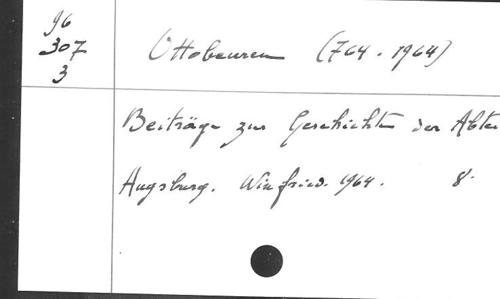 96
307
3
Ottobeuren (764 - 1964)
Beiträge zur Geschichte der Abtei
Augsburg. Winfried. 1964. 8°